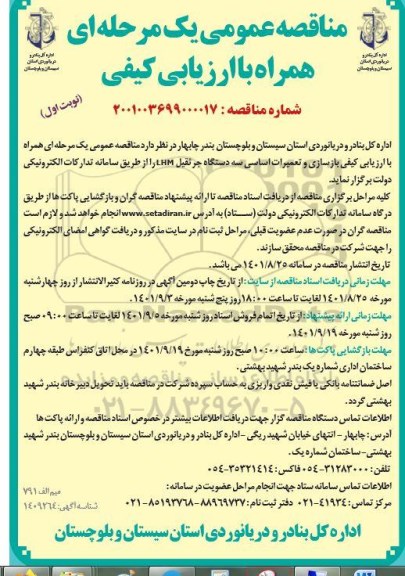 مناقصه عمومی یک مرحله ای
همراه با ارزیابی کیفی
اداره کل بنادر و
دریانوردی استان
سیستان و بلوچستان
اداره کل بنادر و
دریانوردی استان
سیستان و بلوچستان
(نوبت اول)
شماره مناقصه : ۲۰۰۱۰۰۳۶۹۹۰۰۰۰۱۷
اداره کل بنادر و دریانوردی استان سیستان و بلوچستان بندر چابهار در نظر دارد مناقصه عمومی یک مرحله ای همراه
با ارزیابی کیفی بازسازی و تعمیرات اساسی سه دستگاه جرثقیل LHM را از طریق سامانه تدارکات الکترونیکی
دولت برگزار نماید.
کلیه مراحل برگزاری مناقصه از دریافت اسناد مناقصه تا ارائه پیشنهاد مناقصه گران و بازگشایی پاکت ها از طریق
درگاه سامانه تدارکات الکترونیکی دولت (ستاد) به آدرس www.setadiran.ir انجام خواهد شد و لازم است
مناقصه گران در صورت عدم عضویت قبلی، مراحل ثبت نام در سایت مذکور و دریافت گواهی امضای الکترونیکی
را جهت شرکت در مناقصه محقق سازند.
تاریخ انتشار مناقصه در سامانه ۱۴۰۱/۸/۲۵ می باشد.
مهلت زمانی دریافت اسناد مناقصه از سایت : از تاریخ چاپ دومین آگهی در روزنامه کثیر الانتشار از روز چهارشنبه
مورخه ۱۴۰۱/۸/۲۵ لغایت تا ساعت ۱۸:۰۰ روز پنج شنبه مورخه ۱۴۰۱/۹/۳.
مهلت زمانی ارائه پیشنهاد : از تاریخ اتمام فروش اسناد روز شنبه مورخه ۱۴۰۱/۹/۵ لغایت تا ساعت ۰۹:۰۰ صبح
روز شنبه مورخه ۱۴۰۱/۹/۱۹.
مهلت بازگشایی پاکت ها : ساعت ۱۰:۰۰ صبح روز شنبه مورخ ۱۴۰۱/۹/۱۹ در محل اتاق کنفرانس طبقه چهارم
ساختمان اداری شماره یک بندر شهید بهشتی.
اصل ضمانتنامه بانکی یا فیش نقدی واریزی به حساب سپرده شرکت در مناقصه باید تحویل دبیرخانه بندر شهید
بهشتی گردد.
۰۲۱-۸۸۳۴۹۶۷۰-۵
اطلاعات تماس دستگاه مناقصه گزار جهت دریافت اطلاعات بیشتر در خصوص اسناد مناقصه و ارائه پاکت ها
آدرس : چابهار - انتهای خیابان شهید ریگی - اداره کل بنادر و دریانوردی استان سیستان و بلوچستان بندر شهید
بهشتی - ساختمان شماره یک.
تلفن : ۳۱۲۸۳۰۰۰-۰۵۴ فاکس : ۳۵۳۲۱۴۱۴-۰۵۴
اطلاعات تماس سامانه ستاد جهت انجام مراحل عضویت در سامانه :
مرکز تماس : ۴۱۹۳۴-۰۲۱ دفتر ثبت نام : ۸۸۹۶۹۷۳۷ - ۸۵۱۹۳۷۶۸-۰۲۱
میم الف ۷۹۱
شناسه آگهی : ۱۴۰۹۲۶۴
اداره کل بنادر و دریانوردی استان سیستان و بلوچستان